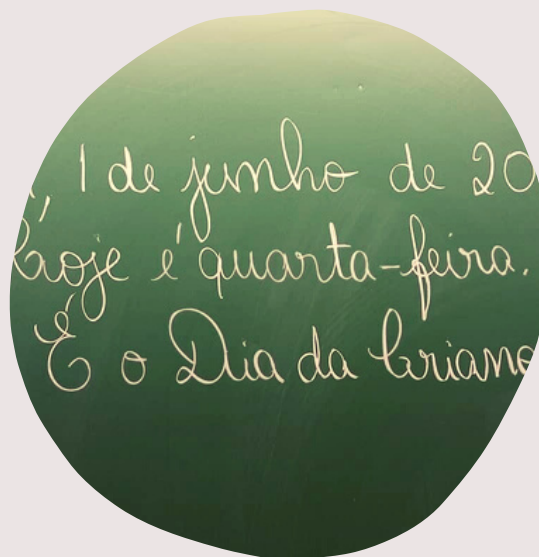 , 1 de junho de 20
Hoje é quarta-feira.
É o Dia da